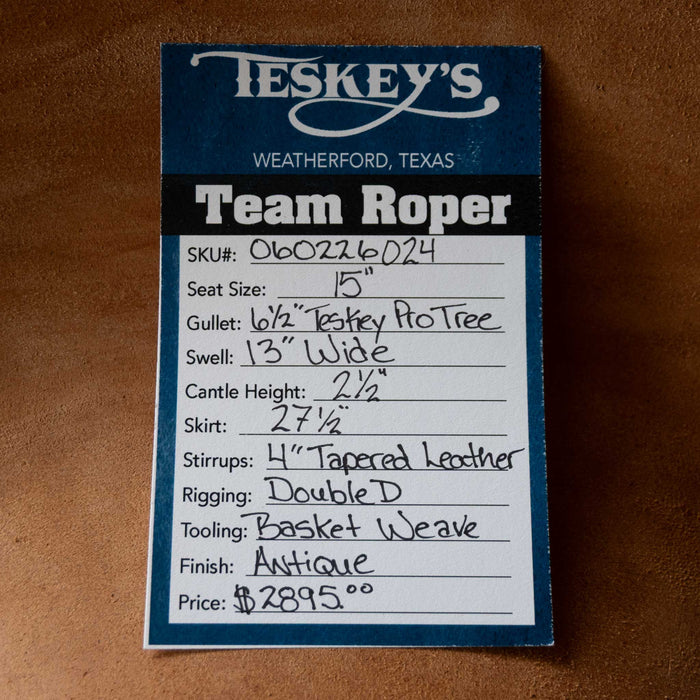 TESKEY'S
WEATHERFORD, TEXAS
Team Roper
SKU#: 060226024
Seat Size: 15"
Gullet: 6½" Teskey ProTree
Swell: 13" Wide
Cantle Height: 2½"
Skirt: 27½"
Stirrups: 4" Tapered Leather
Rigging: Double D
Tooling: Basket Weave
Finish: Antique
Price: $2895.00